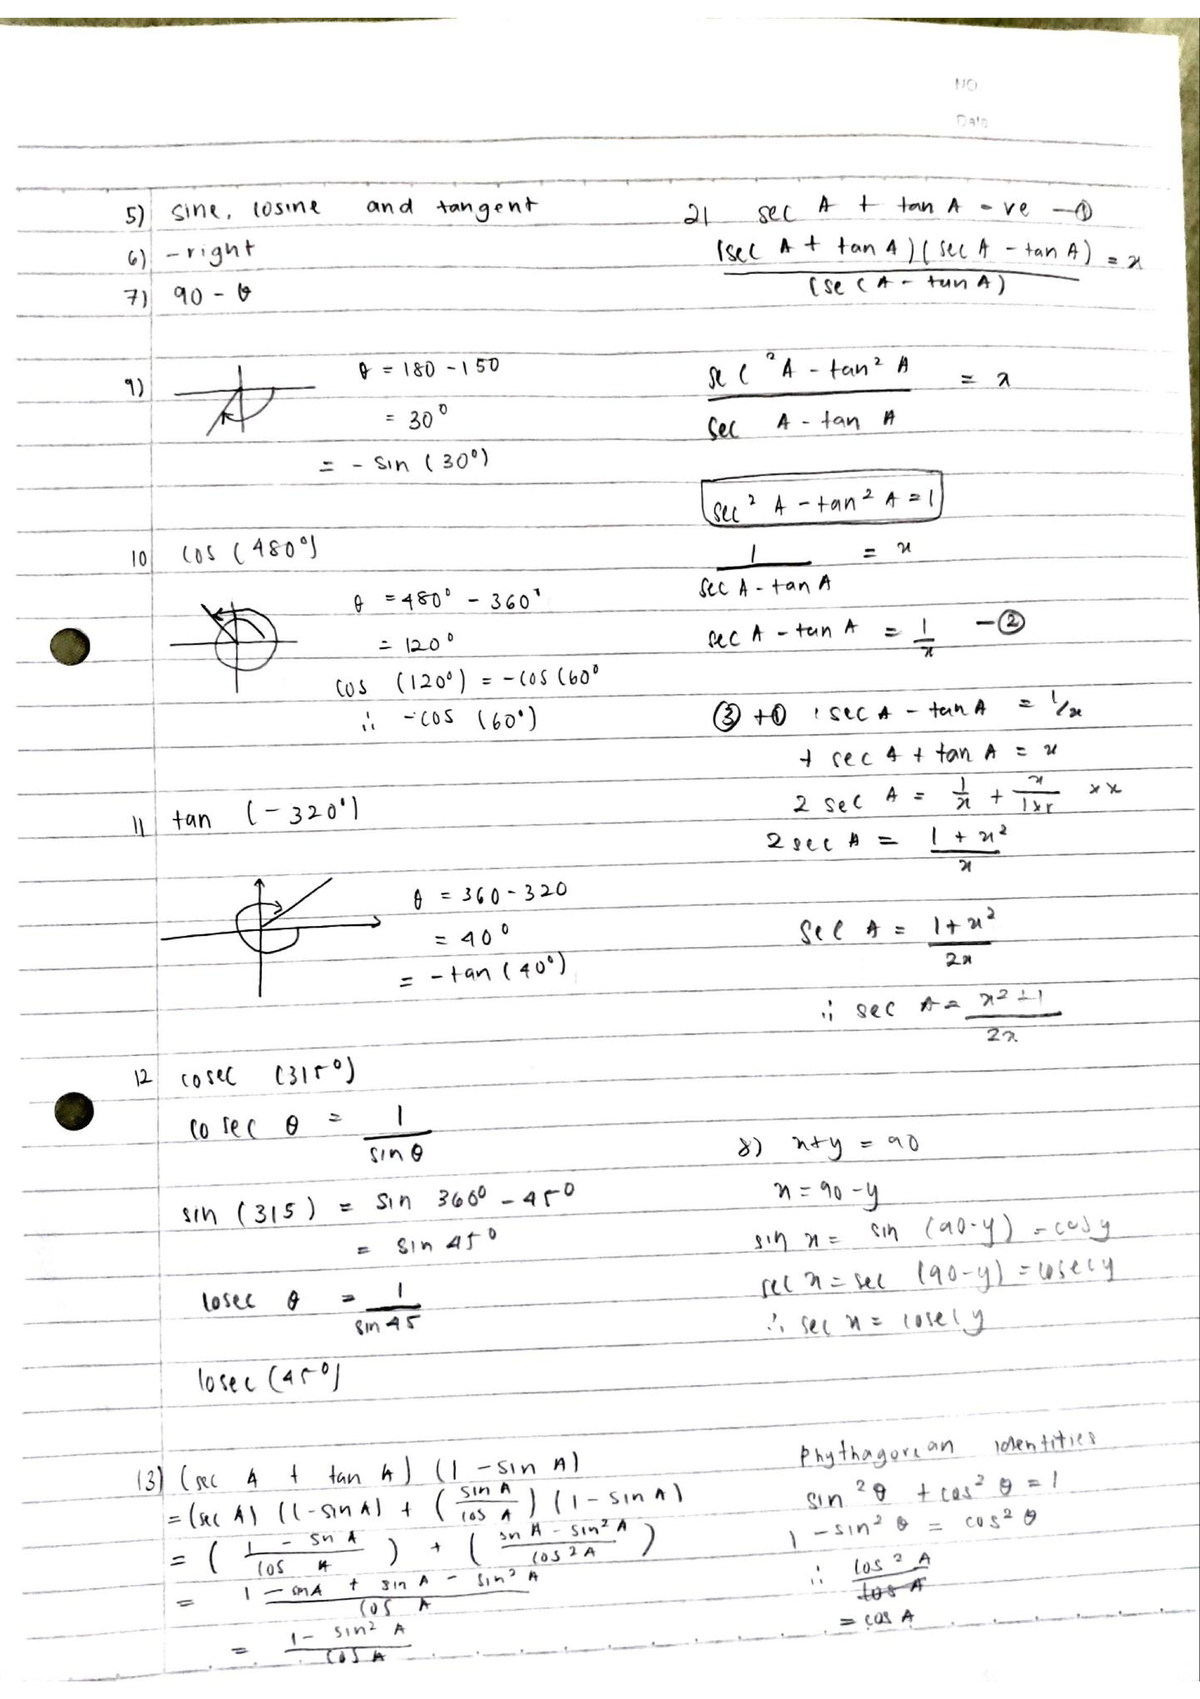 NO
Date
5) sine, cosine and tangent
6) - right
7) 90 - θ
9) θ = 180 - 150
= 30°
= - sin (30°)
10 cos (480°)
θ = 480° - 360°
= 120°
cos (120°) = - cos (60°
∴ - cos (60°)
11 tan (- 320°)
θ = 360 - 320
= 40°
= - tan (40°)
12 cosec (315°)
cosec θ = 1 / sin θ
sin (315) = sin 360° - 45°
= sin 45°
cosec θ = 1 / sin 45
cosec (45°)
13) (sec A + tan A) (1 - sin A)
= (sec A) (1 - sin A) + (sin A / cos A) (1 - sin A)
= (1 - sin A / cos A) + (sin A - sin² A / cos 2 A)
= 1 - sin A + sin A - sin² A / cos A
= 1 - sin² A / cos A
21 sec A + tan A - ve - ①
(sec A + tan A) (sec A - tan A) / (sec A - tan A) = x
sec ² A - tan² A / sec A - tan A = x
sec² A - tan² A = 1
1 / sec A - tan A = x
sec A - tan A = 1/x - ②
③ + ① : sec A - tan A = 1/x
+ sec A + tan A = x
2 sec A = 1/x + x / 1xx xx
2 sec A = 1 + x² / x
sec A = 1 + x² / 2x
∴ sec A = x² + 1 / 2x
8) x + y = 90
x = 90 - y
sin x = sin (90 - y) = cos y
sec x = sec (90 - y) = cosec y
∴ sec x = cosec y
Phythagorean identities
sin ² θ + cos² θ = 1
1 - sin² θ = cos² θ
∴ cos ² A / cos A
= cos A